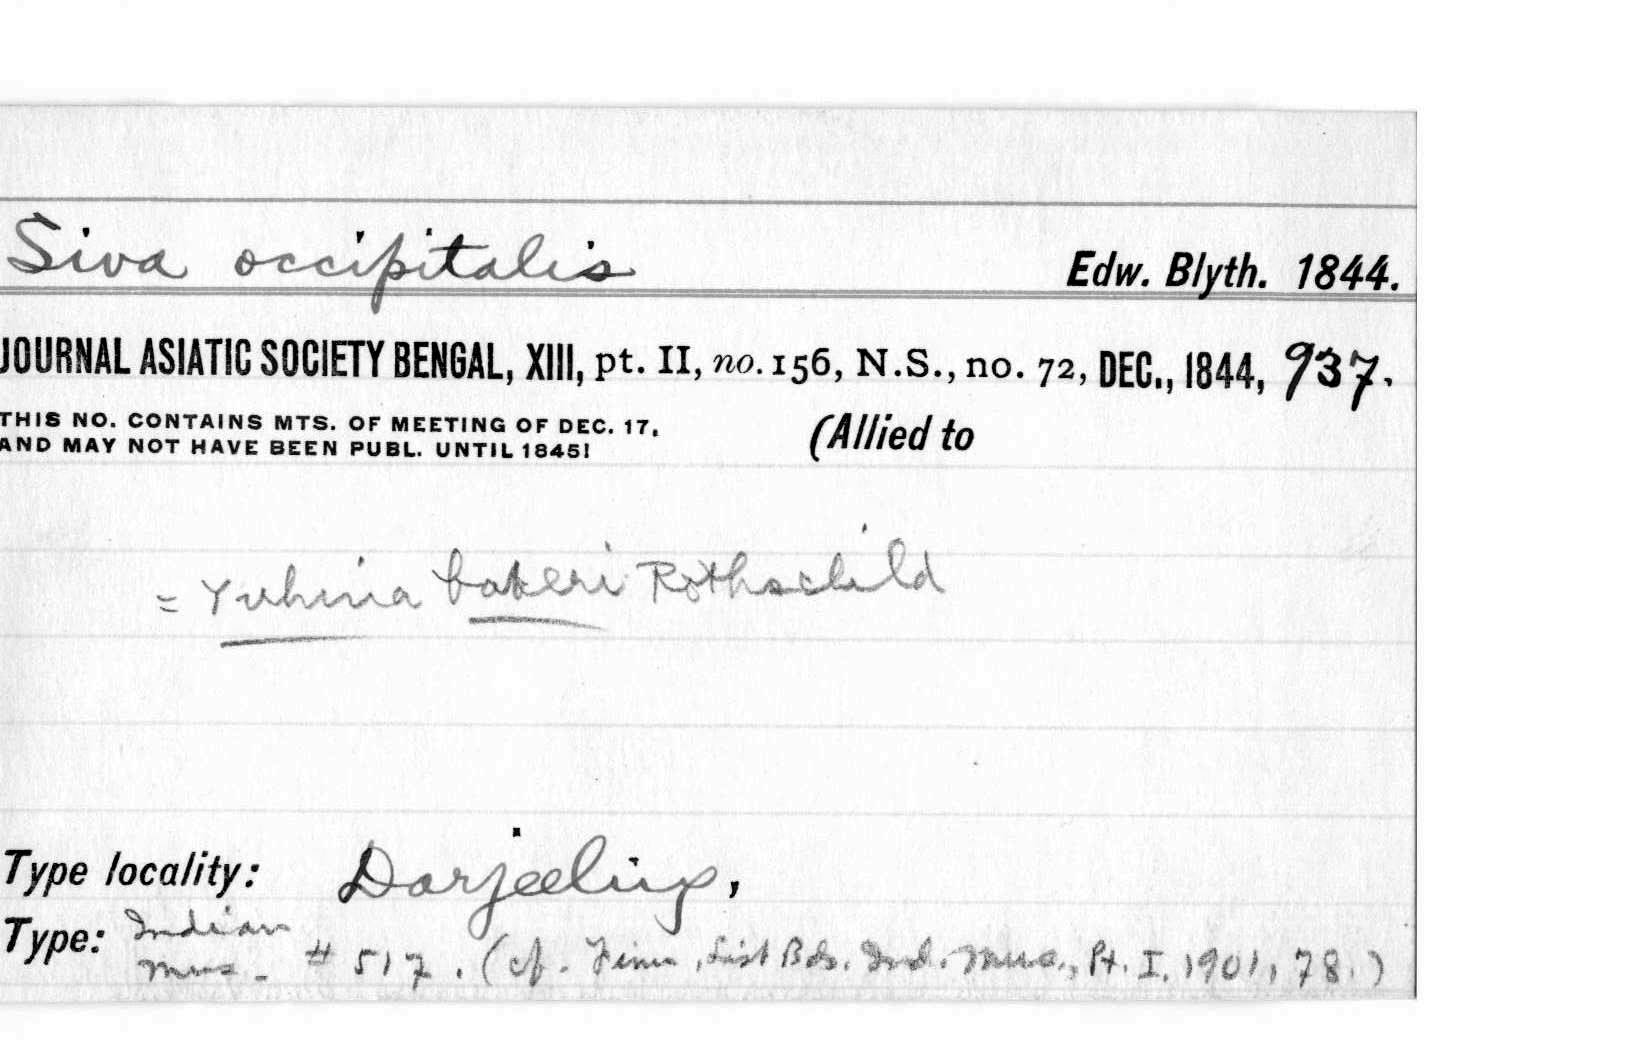 Siva occipitalis Edw. Blyth. 1844.
JOURNAL ASIATIC SOCIETY BENGAL, XIII, pt. II, no. 156, N.S., no. 72, DEC., 1844, 937.
THIS NO. CONTAINS MTS. OF MEETING OF DEC. 17,
AND MAY NOT HAVE BEEN PUBL. UNTIL 1845!
(Allied to
= Yuhina bakeri Rothschild
Type locality: Darjeeling,
Type: Indian
Mus. # 517. (cf. Finn, List Bds. Ind. Mus., Pt. I, 1901, 78.)